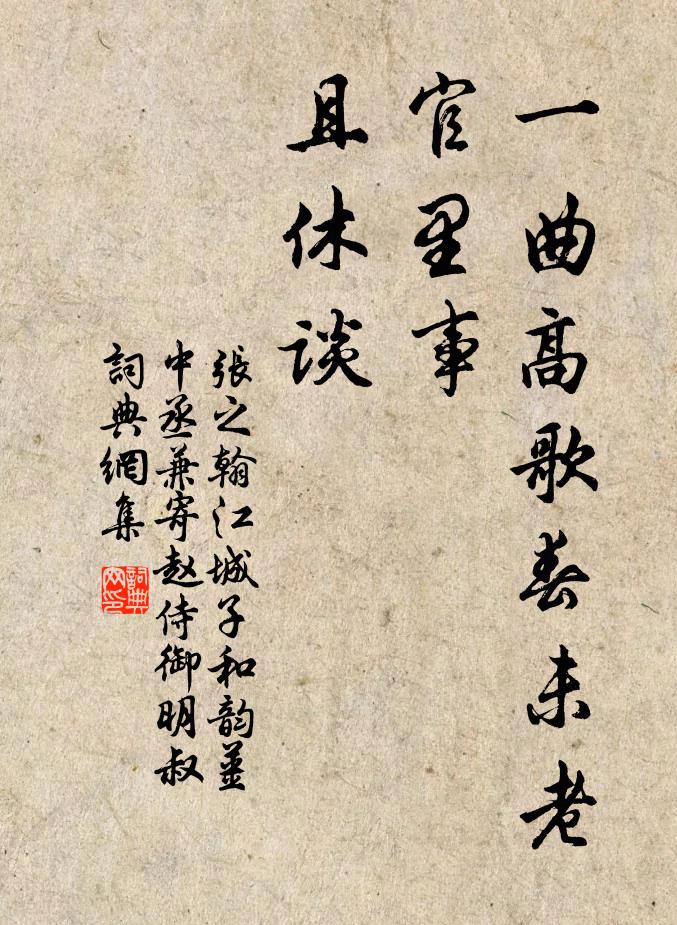 一曲高歌春未老
官里事
且休谈
張之翰江城子和韵姜
中丞兼寄赵侍御明叔
詞典網集
詞典
网印